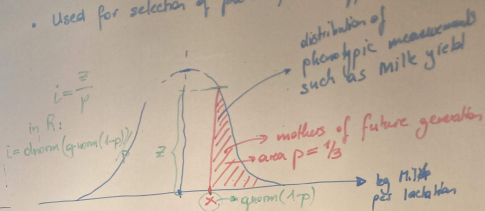 • Used for selection of
distribution of
phenotypic measurements
such as Milk yield
i = z/p
in R:
i = dnorm(qnorm(1-p))/p
z
mothers of future generation
area p = 1/3
x
qnorm(1-p)
kg Milk
per lactation